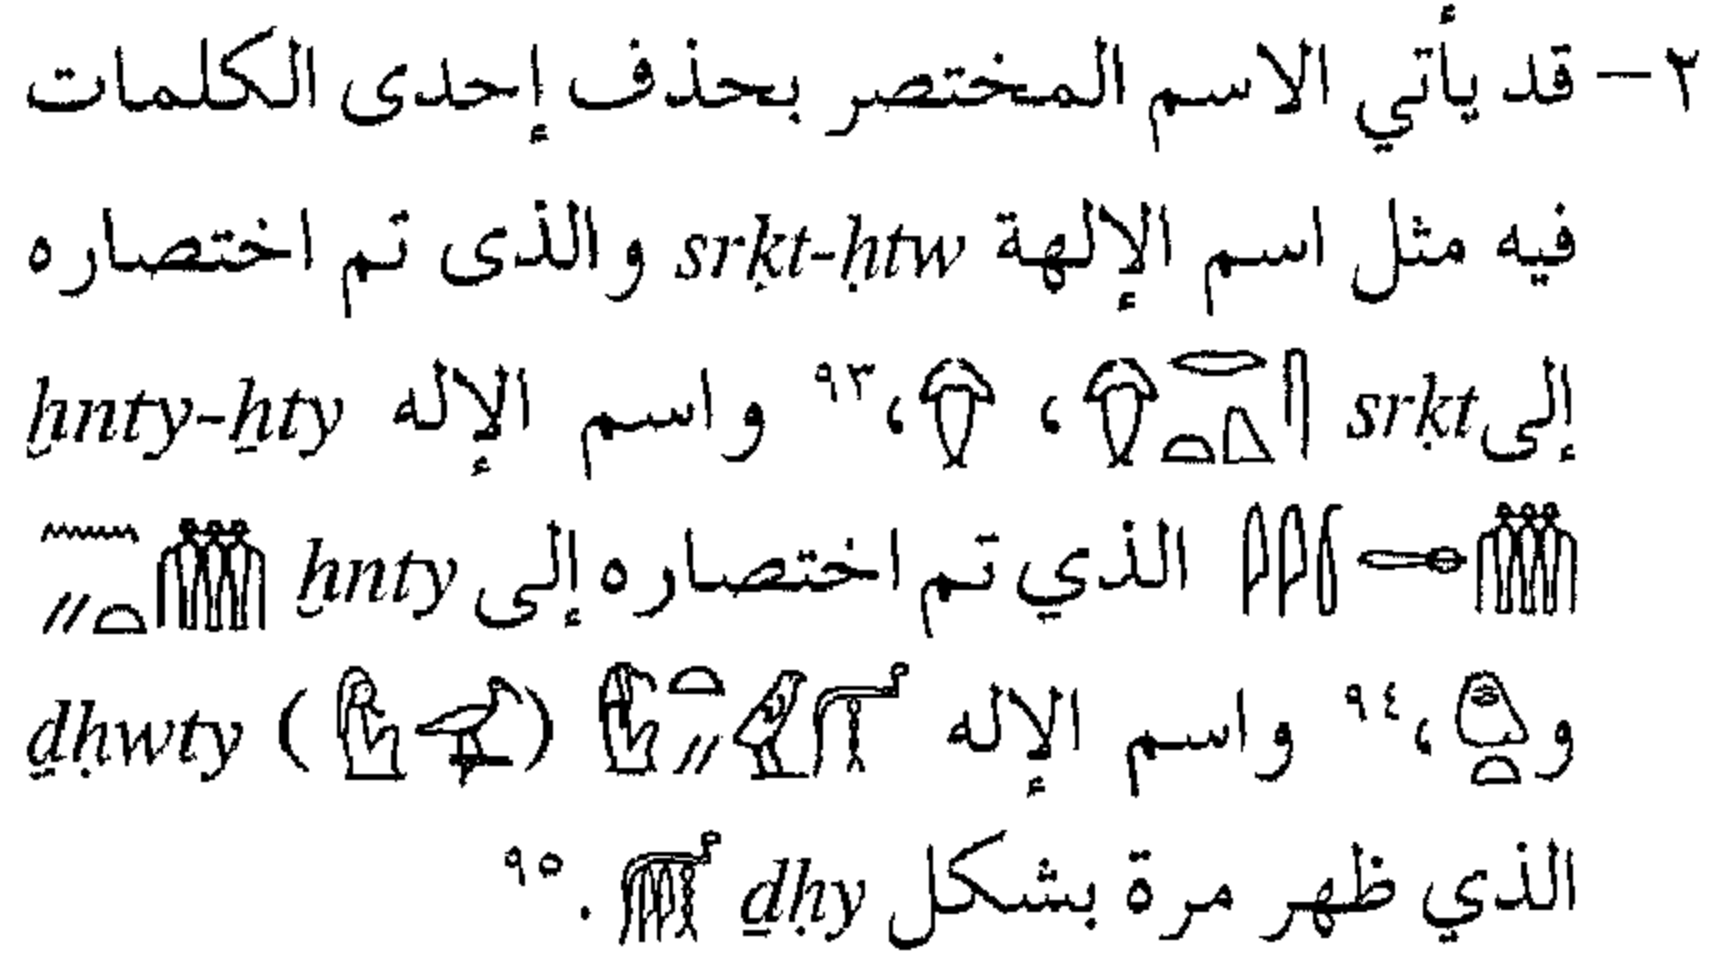 ٢ – قد يأتي الاسم المختصر بحذف إحدى الكلمات
فيه مثل اسم الإلهة srḳt-ḥtw والذى تم اختصاره
إلى srḳt ، ،٩٣ واسم الإله ẖnty-ẖty
الذي تم اختصاره إلى ẖnty
و ،٩٤ واسم الإله ( ) ḏḥwty
الذي ظهر مرة بشكل ḏḥy .٩٥